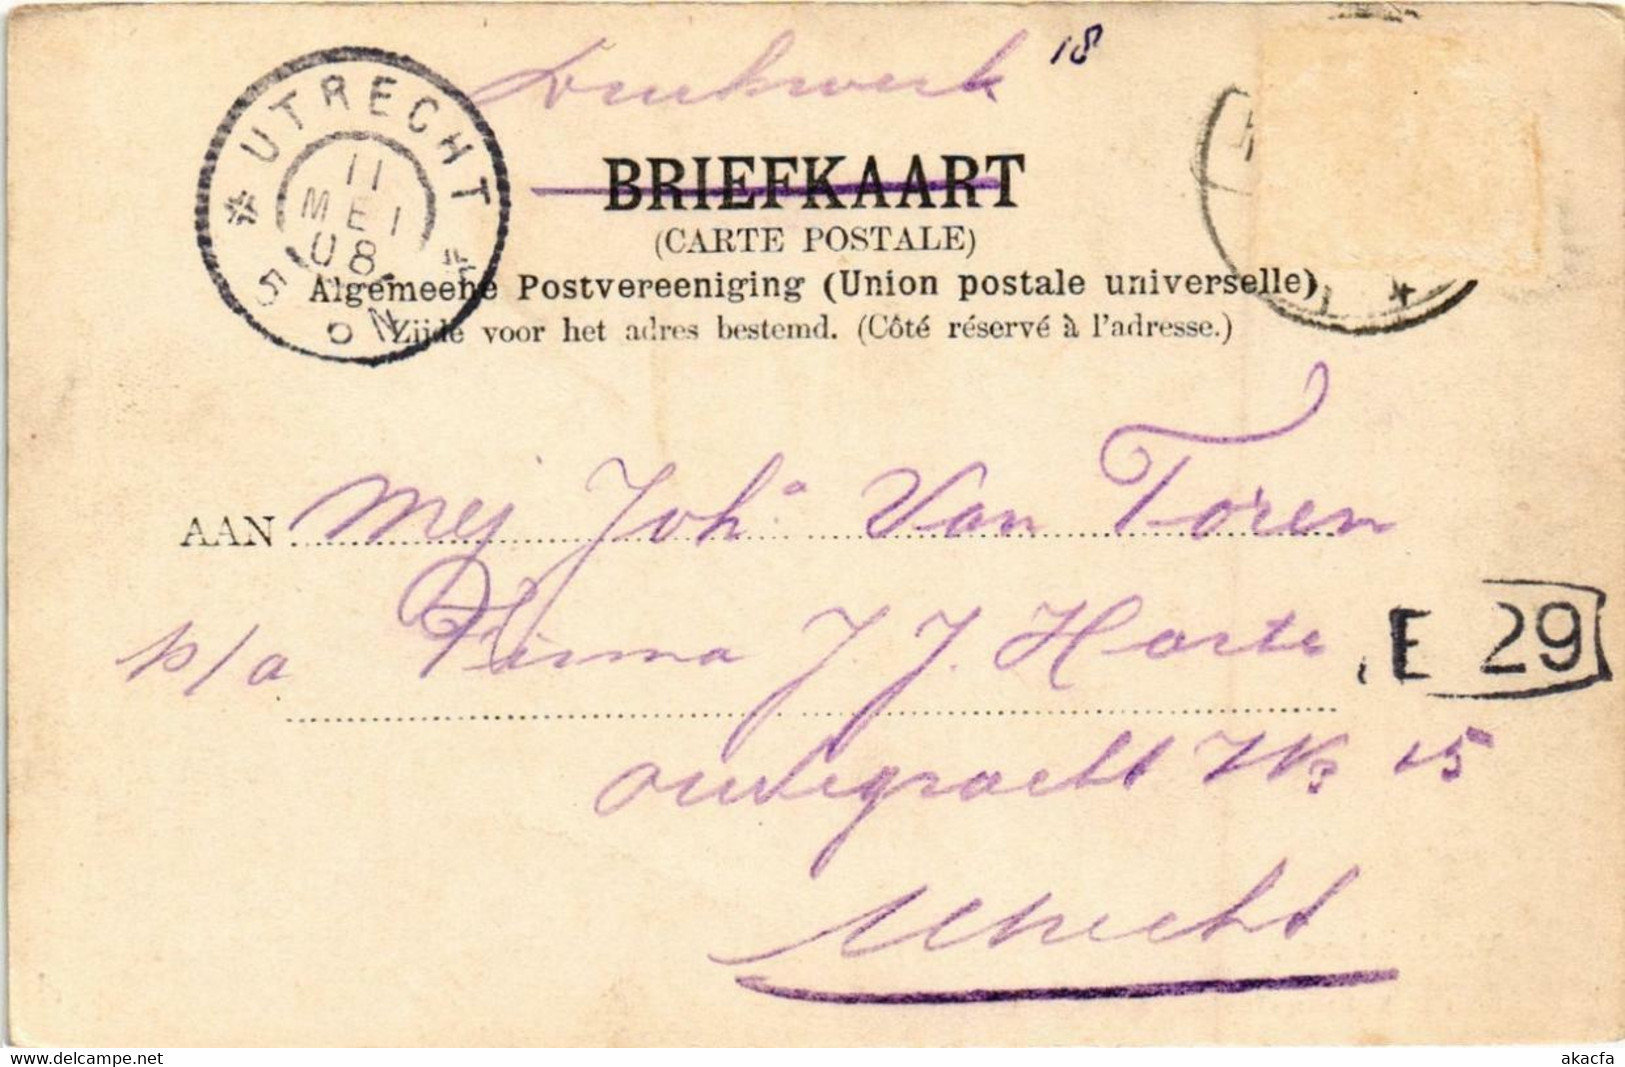 Drukwerk 18
BRIEFKAART
(CARTE POSTALE)
Algemeene Postvereeniging (Union postale universelle)
Zijde voor het adres bestemd. (Côté réservé à l'adresse.)
UTRECHT
11
MEI
08
5 6N
AAN Mej Joha Van Toren
p/a Firma J. J. Harte
E 29
oudegracht Wz 15
Utrecht
delcampe.net
akacfa